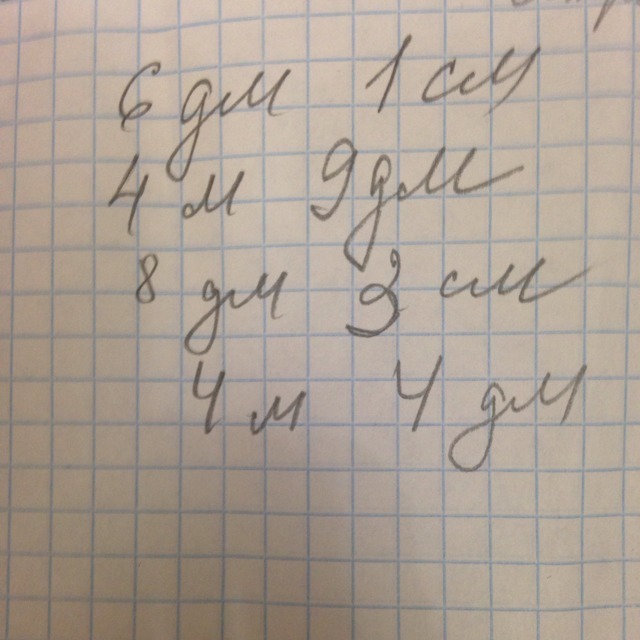 6 дм 1 см
4 м 9 дм
8 дм 3 см
4 м 4 дм